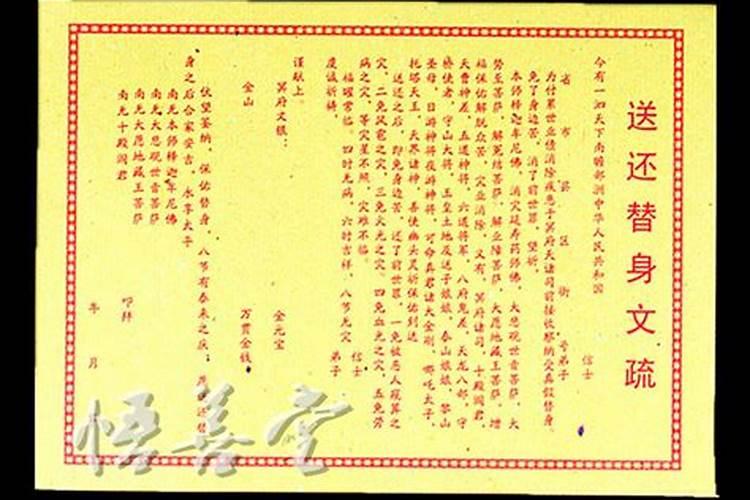 送还替身文疏
今有一泗天下南赡部洲中华人民共和国
省 市 县 区 街 号弟子 信士
为付累世业债消除疾患于冥府天诸司前接收祭纳受真假替身
免了身边苦，消了前世罪，望祈，
本师释迦牟尼佛，消灾延寿药师佛，大悲观世音菩萨，大
势至菩萨，解冤结菩萨，解业障菩萨，大愿地藏王菩萨，增
福保佑解脱众苦，灾业消除，又有，冥府诸司，十殿阎君，
天曹神差，五道神将，六道将军，八府鬼差，天龙八部，守
桥使者，守山大将，玉皇土地及送子娘娘，泰山娘娘，黎山
圣母，日游神将夜游神将，司命真君诸大金刚，哪吒太子，
托塔天王，天界诸神，善使幽头灵祈保佑到送
送还之后，即免身边苦，还了前世罪，一免被恶人欺算之
灾，二免风雹之灾，三免火光之灾，四免血光之灾，五免劳
病之灾，等灾星不照，灾难不临。
福禄常临，四时无病，六时吉祥，八节无灾 信士
虔诚祈祷， 弟子
谨献上。
冥府文银： 金元宝
金山 万贯金钱
伏望鉴纳，保佑替身，八节有泰来之庆；送还替
身之后合家安吉，永享太子
南无本师释迦牟尼佛
南无大悲观世音菩萨
南无大愿地藏王菩萨
南无十殿阎君 叩拜
年 月
悟善堂